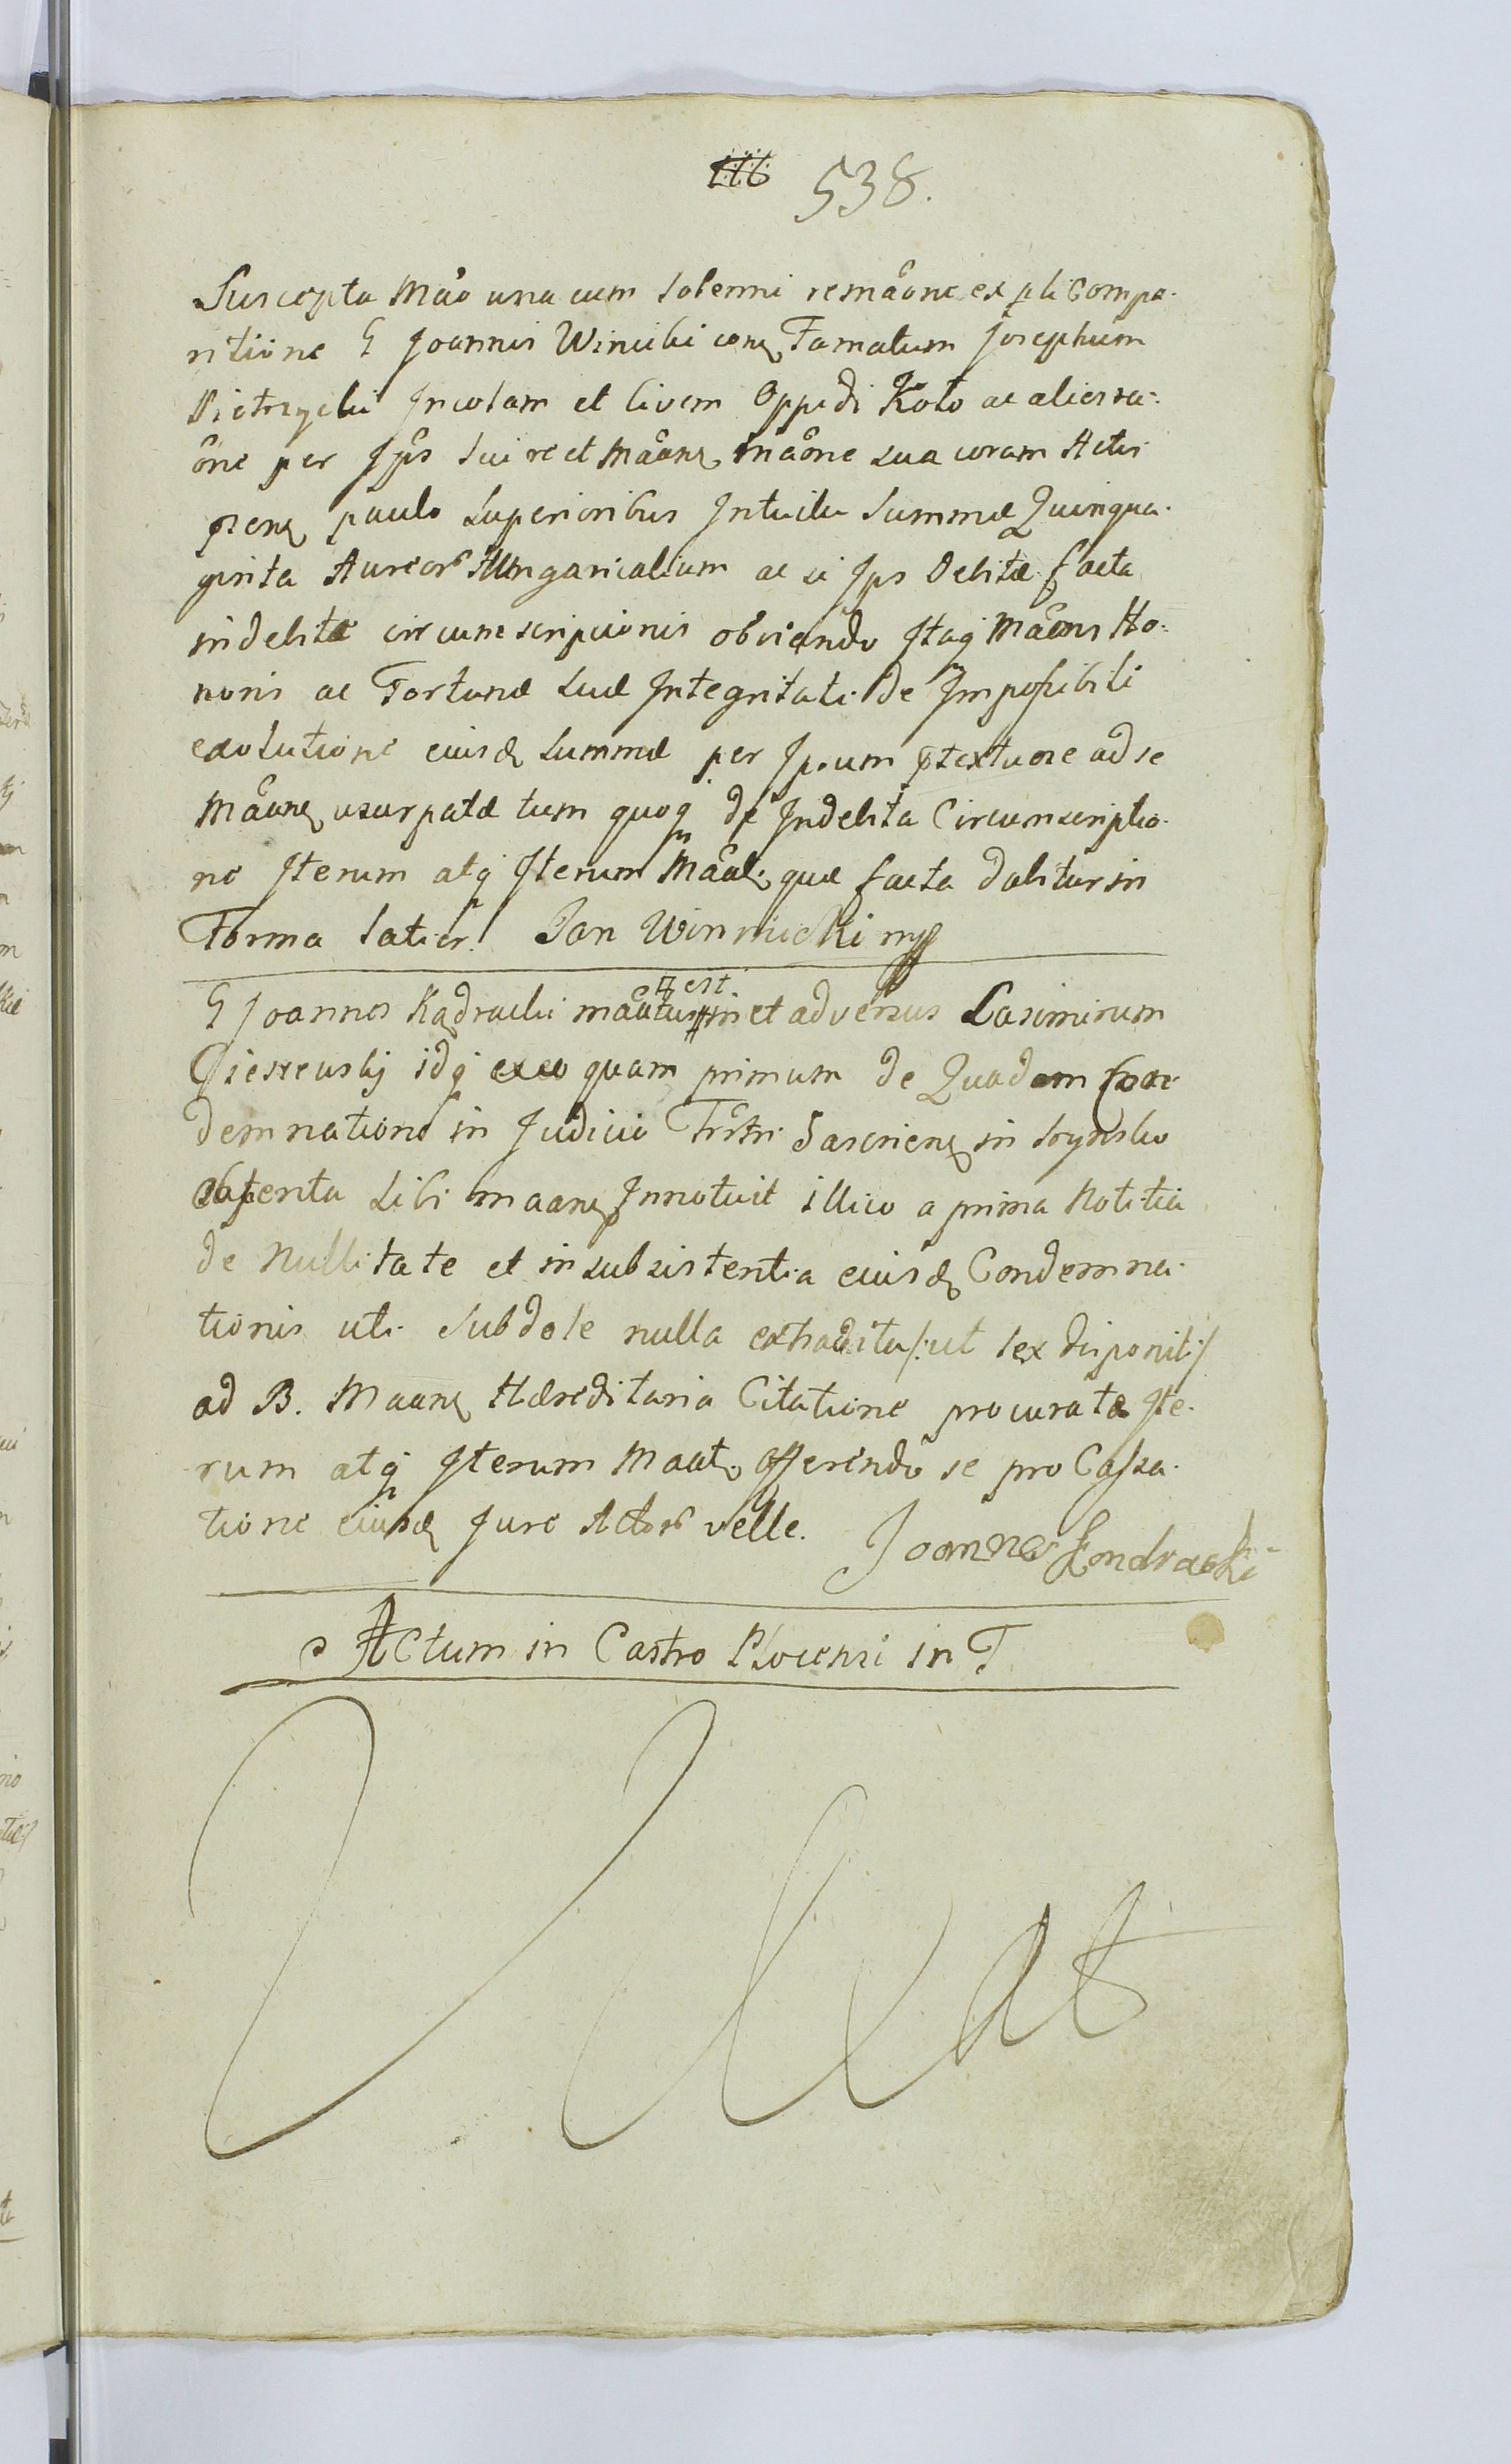 538.
Suscepta Mão una cum solenni remãone ex pti Compa-
ritione G Joannis Winicki conq Famatum Josephum
Pietrzycki Incolam et Civem Oppidi Koło ac aliena-
õne per Ips sui re et Mãanq Mãone sua coram Actis
pãenq paulo Superioribus Intuitu Summæ Quinqua-
ginta Aureor Hungaricalium ac si Ips Debitæ facta
indebitæ circumscripcionis obviando Itaq Mãans Ho-
noris ac Fortunæ suæ Integritati de Impossibili
exolutione eiusd Summæ per Ipsum ptextuose ad se
Mãanq usurpatæ tum quoq de Indebita Circumscriptio-
ne Iterum atq Iterum Mãat, quæ facta dabitur in
Forma latior. Jan Winnicki mp
G Joannes Kądracki mãatus est in et adversus Casimirum
idq ex eo quam primum de Quadam Con
demnatione in Judicio Trstri in
obtenta sibi maanq Innotuit illico a prima Notitia
de Nullitate et insubsistentia eiusd Condemna-
tionis uti subdole nulla extradita /:ut lex disponit:/
ad B. Maanq Hæreditaria Citatione procurata Ite-
rum atq Iterum Maat, offerendo se pro Cassa-
tione eiusd Jure Actor velle. Joannes Kondracki
Actum in Castro Plocensi in T